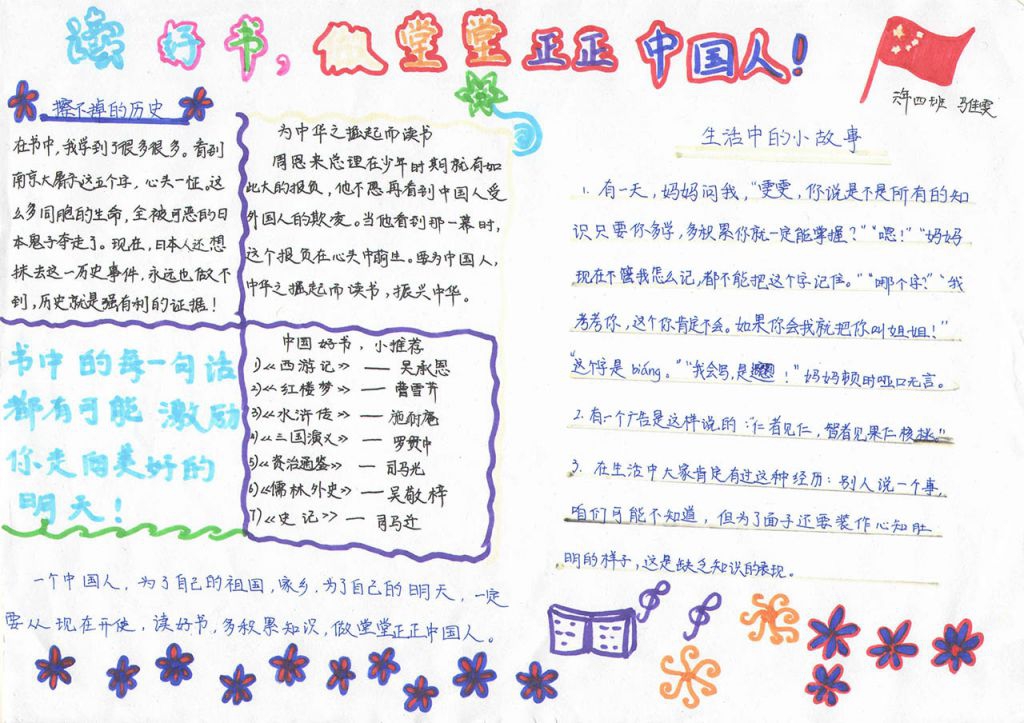 读好书,做堂堂正正中国人!
六年四班 马佳雯
擦不掉的历史
在书中,我学到了很多很多。看到
南京大屠杀这五个字,心头一怔。这
么多同胞的生命,全被可恶的日
本鬼子夺走了。现在,日本人还想
抹去这一历史事件,永远也做不
到,历史就是强有利的证据!
为中华之崛起而读书
周恩来总理在少年时期就有如
此大的报负,他不愿再看到中国人受
外国人的欺凌。当他看到那一幕时,
这个报负在心头中萌生。要为中国人,
中华之崛起而读书,振兴中华。
书中的每一句话
都有可能激励
你走向美好的
明天!
中国好书,小推荐
1)《西游记》— 吴承恩
2)《红楼梦》— 曹雪芹
3)《水浒传》— 施耐庵
4)《三国演义》— 罗贯中
5)《资治通鉴》— 司马光
6)《儒林外史》— 吴敬梓
7)《史记》— 司马迁
一个中国人,为了自己的祖国,家乡,为了自己的明天,一定
要从现在开使,读好书,多积累知识,做堂堂正正中国人。
生活中的小故事
1. 有一天,妈妈问我,“雯雯,你说是不是所有的知
识只要你多学,多积累你就一定能掌握?”“嗯!”“妈妈
现在不管我怎么记,都不能把这个字记住。”“哪个字?”“我
考考你,这个你肯定不会。如果你会我就把你叫姐姐!”
“这个字是biáng。”“我会写,是!”妈妈顿时哑口无言。
2. 有一个广告是这样说的:“仁者见仁,智者见果仁核桃。”
3. 在生活中大家肯定有过这种经历:别人说一个事,
咱们可能不知道,但为了面子还要装作心知肚
明的样子,这是缺乏知识的表现。